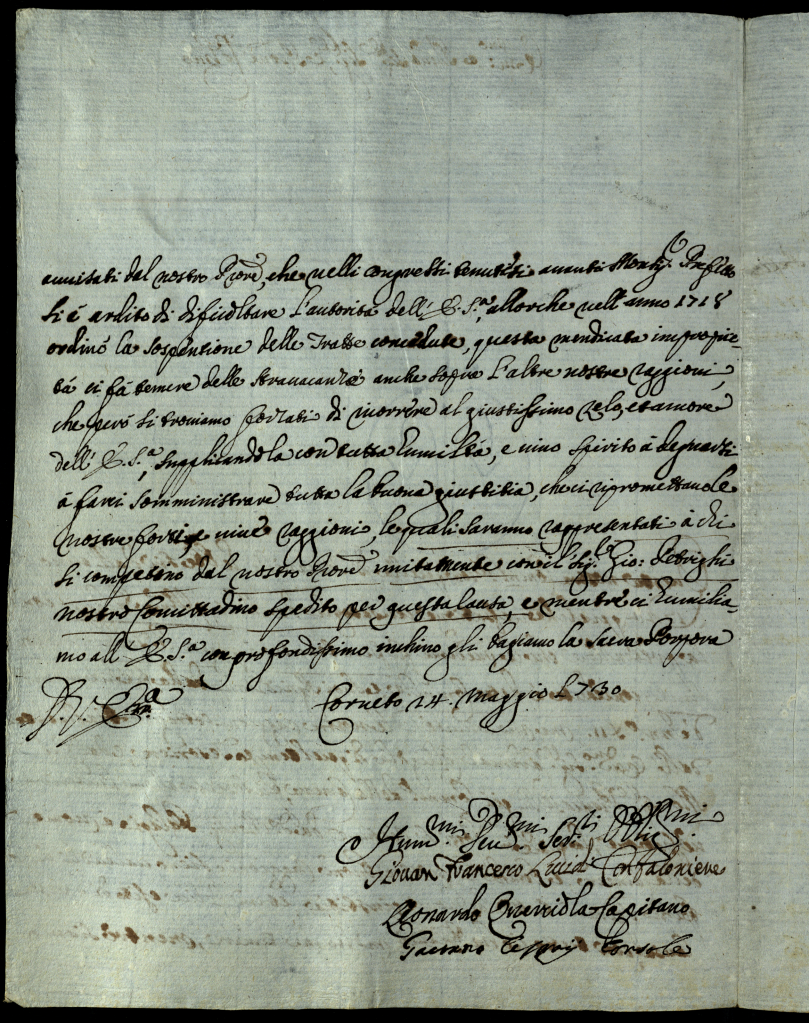 auuisati dal nostro Procre, che nelli congressi tenutisi auanti Monsig.r
si è ardito di dificoltare L'autorità dell'E.S.a, allorche nell'anno 1718
ordinò la sospentione delle Tratte concedute, questa mendicata improprie-
tà ci fà temere delle strauacanze anche sopra L'altre nostre raggioni,
che però si trouiamo forzati di ricorrere al giustissimo zelo, et amore
dell'E.S.a, supplicandola con tutta humiltà, e uiuo spirito à degnarsi
à farci somministrare tutta la buona giustitia, che ci ripromettano le
nostre forti, e uiue raggioni, le quali saranno rappresentati à chi
si competono dal nostro Procre unitamente con il Sig.r Gio:
nostro Concittadino spedito per questa causa, e mentre ci humilia-
mo all'E.S.a con profondissimo inchino gli bagiamo la Sacra Porpora
Corneto 24. Maggio 1730
Humi.mi Deu.mi
Giouan Francesco Confaloniere
Leonardo Querciola Capitano
Gaetano Console